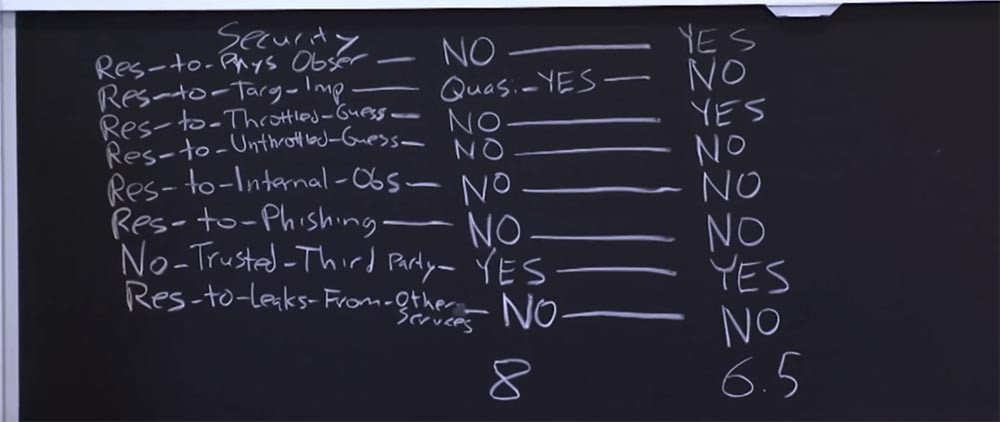 Security
Res-to-Phys Obser — NO — YES
Res-to-Targ-Imp — Quasi-YES — NO
Res-to-Throttled-Guess — NO — YES
Res-to-Unthrottled-Guess — NO — NO
Res-to-Internal-Obs — NO — NO
Res-to-Phishing — NO — NO
No-Trusted-Third Party — YES — YES
Res-to-Leaks-From-Other — NO — NO
Services
8 6.5